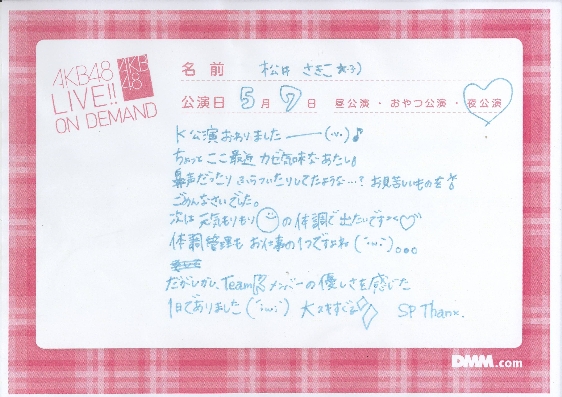 AKB48
LIVE!!
ON DEMAND
AKB
48
名前 松井 さきこ ★彡
公演日 5月7日 昼公演・おやつ公演・夜公演
K公演おわりました――(´ω`)♪
ちょっと ここ最近 カゼ気味なあたし。
鼻声だったり ふらついたりしてたような…? お見苦しいものを
ごめんなさいでした。
次は 元気もりもり の体調で出たいですな♡
体調管理も お仕事の1つですよね(´・ω・`)。。。
だがしかし、Team K メンバーの優しさを感じた
1日でありました(´・ω・`) 大スキすぎる SP Thanx.
DMM.com